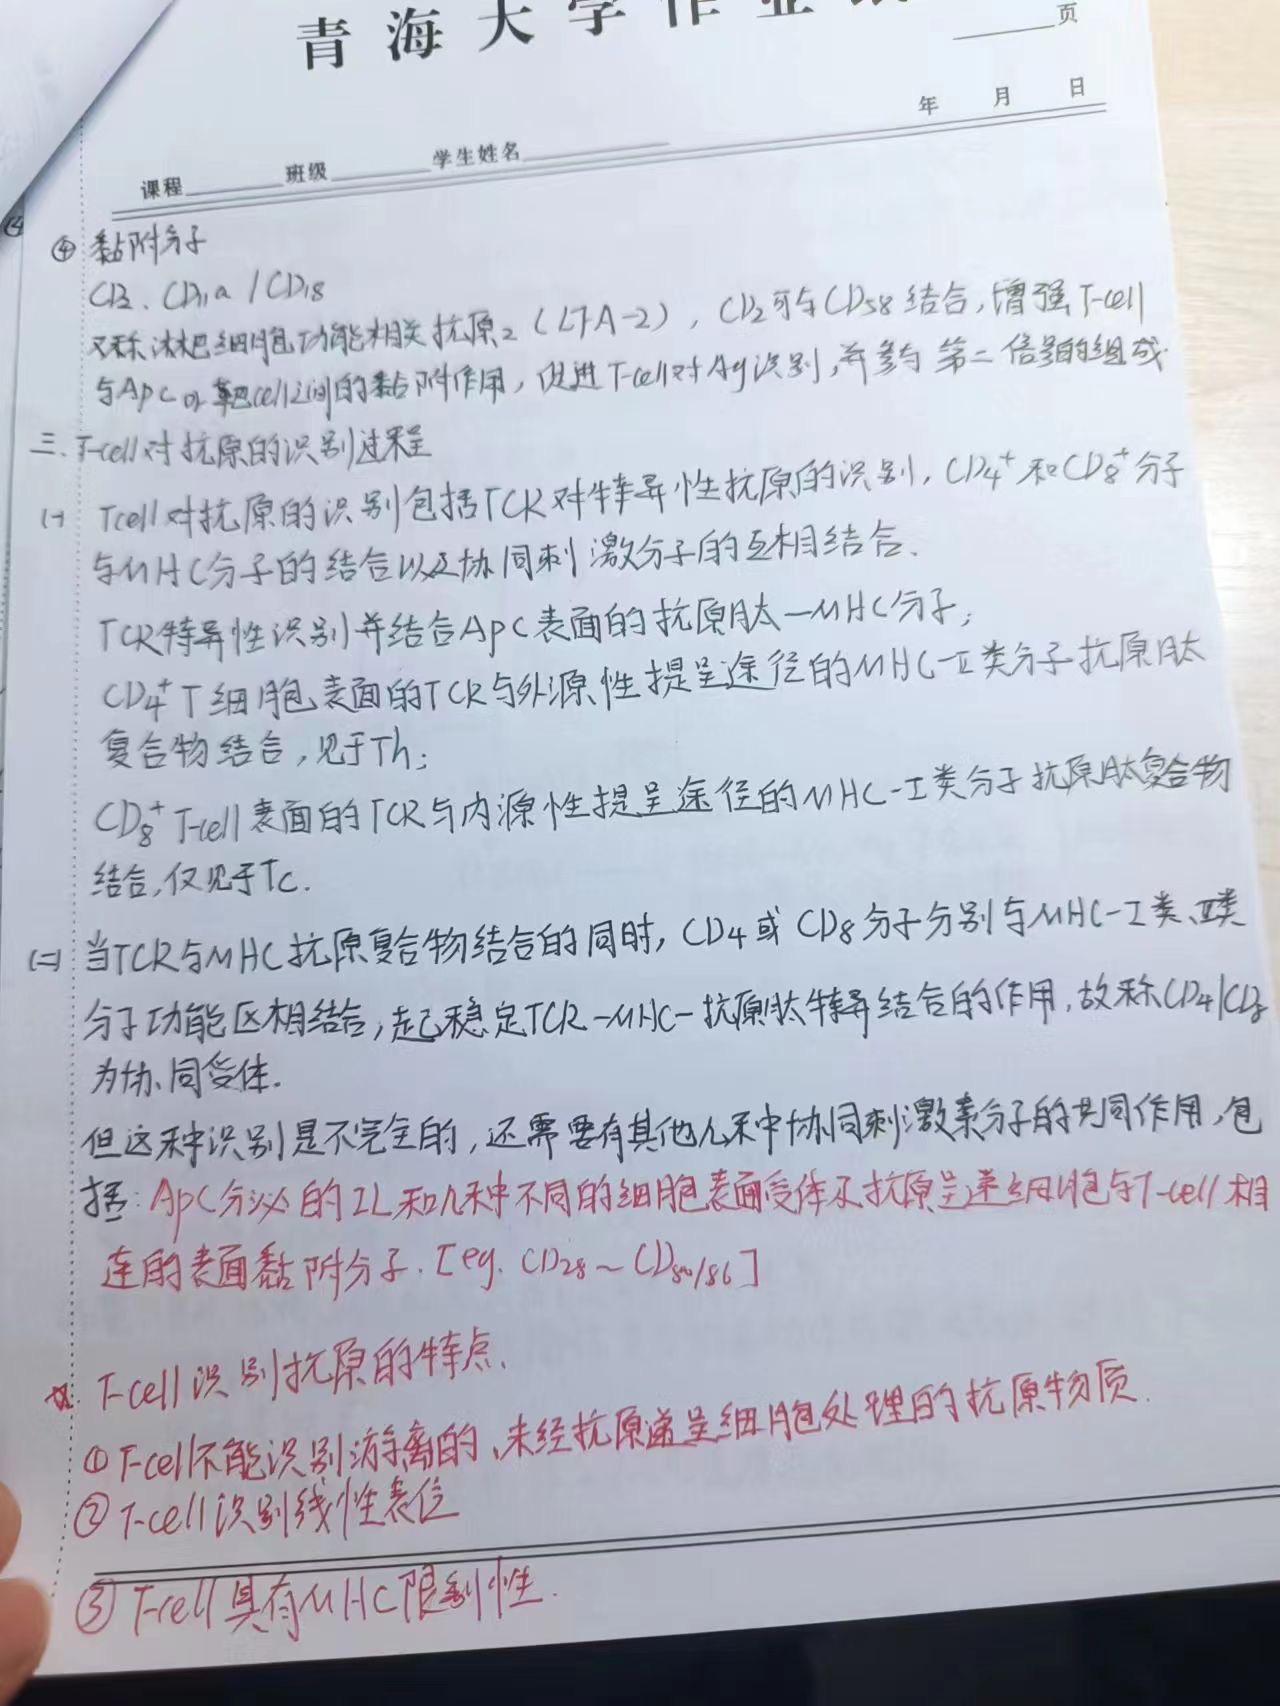 青海大学作业纸
页
年 月 日
课程 班级 学生姓名
④ 黏附分子
CD2、CD11a / CD18
又称淋巴细胞功能相关抗原2（LFA-2），CD2可与CD58结合，增强T-cell
与APC or 靶cell之间的黏附作用，促进T-cell对Ag识别，并参与第二信号的组成
三. T-cell对抗原的识别过程
(一) Tcell对抗原的识别包括TCR对特异性抗原的识别，CD4⁺和CD8⁺分子
与MHC分子的结合以及协同刺激分子的互相结合.
TCR特异性识别并结合APC表面的抗原肽—MHC分子；
CD4⁺T细胞表面的TCR与外源性提呈途径的MHC-Ⅱ类分子抗原肽
复合物结合，见于Th；
CD8⁺T-cell表面的TCR与内源性提呈途径的MHC-I类分子抗原肽复合物
结合，仅见于Tc.
(二) 当TCR与MHC抗原复合物结合的同时，CD4或CD8分子分别与MHC-I类、Ⅱ类
分子功能区相结合，起稳定TCR-MHC-抗原肽特异结合的作用，故称CD4/CD8
为协同受体.
但这种识别是不完全的，还需要有其他几种协同刺激素分子的共同作用，包
括：APC分泌的IL和几种不同的细胞表面受体及抗原呈递细胞与T-cell相
连的表面黏附分子.[eg. CD28～CD80/86]
T-cell识别抗原的特点.
① T-cell不能识别游离的、未经抗原递呈细胞处理的抗原物质.
② T-cell识别线性表位
③ T-cell具有MHC限制性.